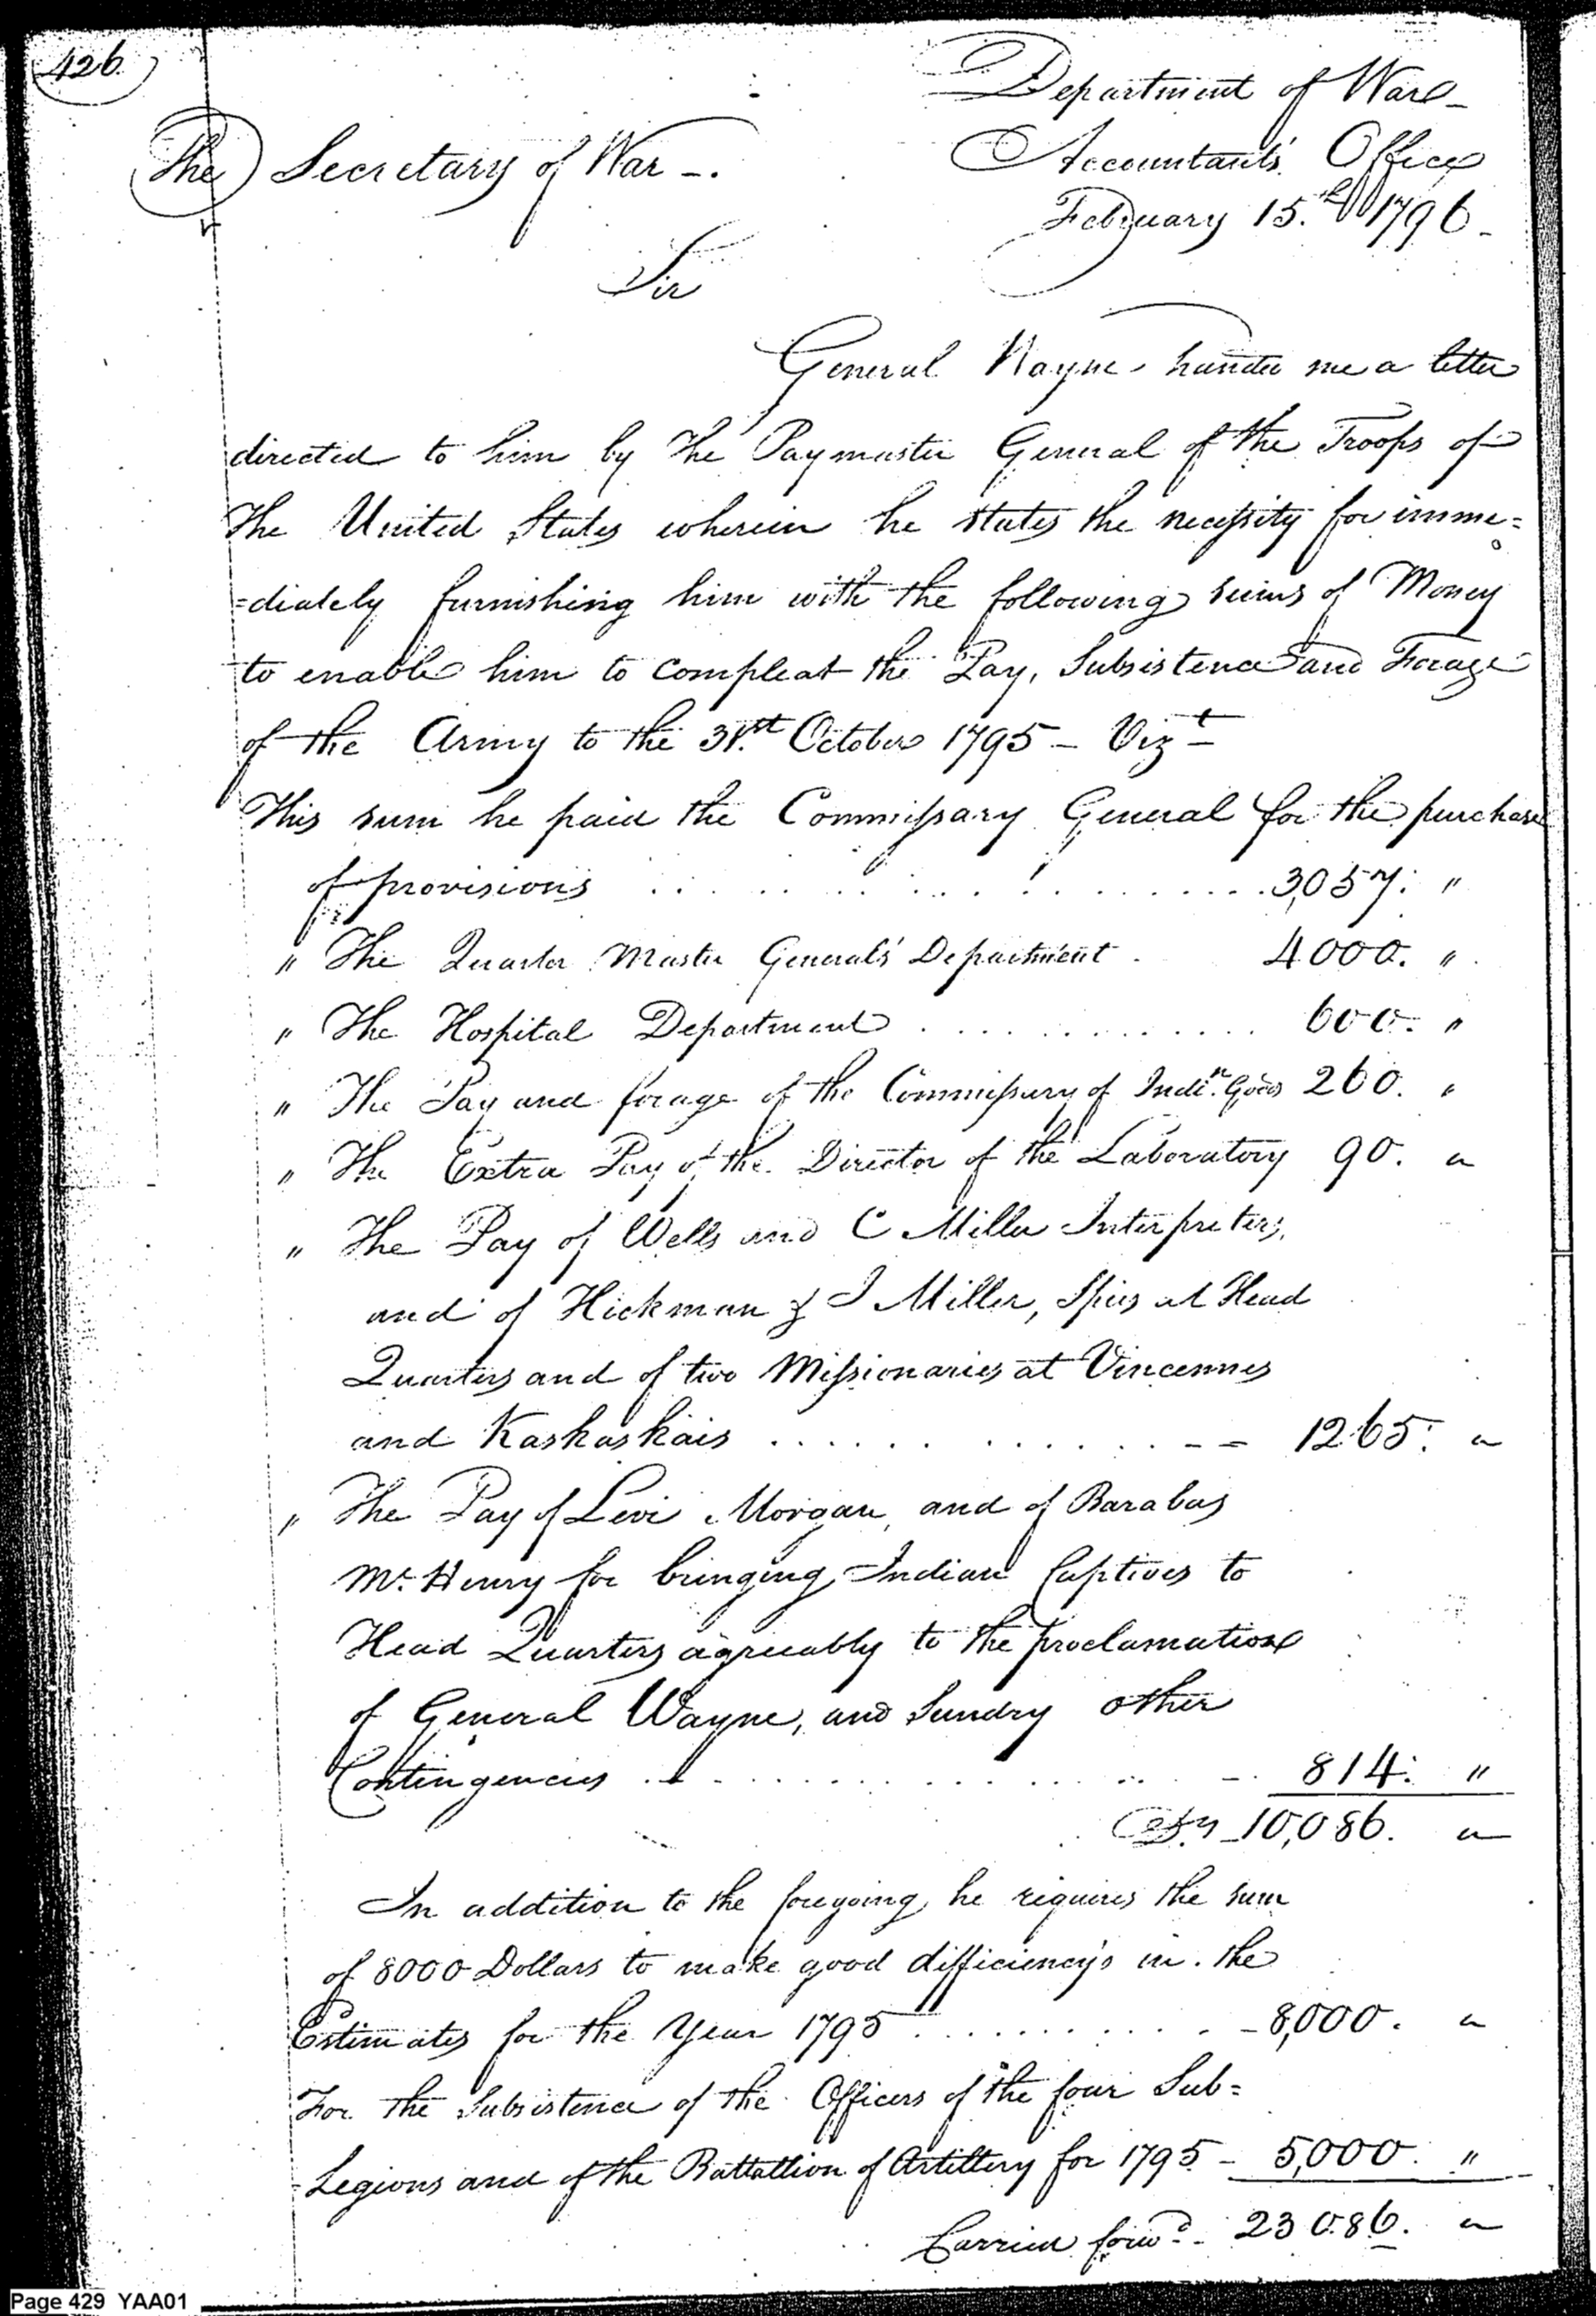 426
Department of War
The Secretary of War -.
Accountant's Office
February 15.th 1796
Sir
General Wayne handed me a letter
directed to him by the Paymaster General of the Troops of
the United States wherein he states the necessity for imme=
=diately furnishing him with the following sums of Money
to enable him to compleat the Pay, Subsistence and Forage
of the Army to the 31.st October 1795 - Vizt
This sum he paid the Commissary General for the purchase
of provisions . . . . . . . . . . 3,057. "
" The Quarter Master General's Department . 4000. "
" The Hospital Department . . . . . . . . . 600. "
" The Pay and forage of the Commissary of Indn. Goods 260. "
" The Extra Pay of the Director of the Laboratory 90. "
" The Pay of Wells and C Miller Interpreters,
and of Hickman & I Miller, Spies at Head
Quarters and of two Missionaries at Vincennes
and Kaskaskais . . . . . . . . . - - 1265. "
" The Pay of Levi Morgan, and of Barabas
Mc.Henry for bringing Indian Captives to
Head Quarters agreeably to the proclamation
of General Wayne, and Sundry other
Contingencies . . . . . . . . . . - 814. "
10,086. "
In addition to the foregoing, he requires the sum
of 8000 Dollars to make good difficiency's in the
Estimates for the Year 1795 . . . . . . . . - 8,000. "
For the Subsistence of the Officers of the four Sub=
=Legions and of the Battallion of Artillery for 1795 - 5,000. "
Carried forwd. - 23086. "
Page 429 YAA01